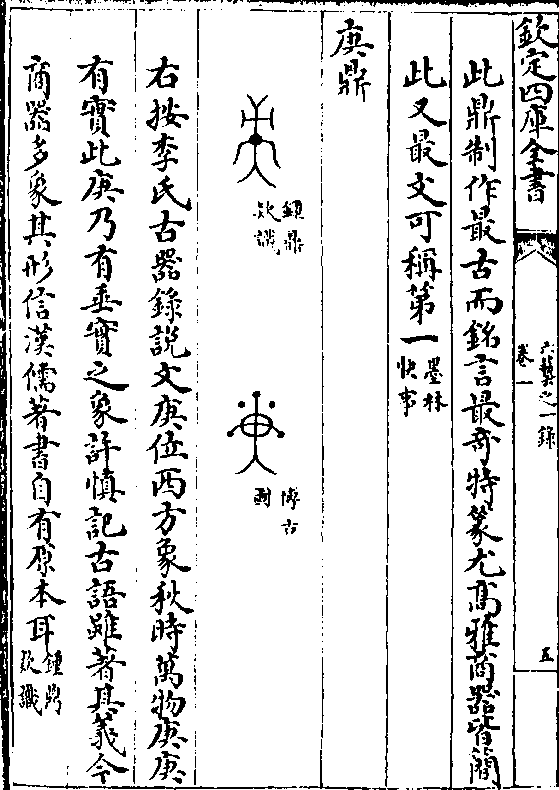 欽定四庫全書
六藝之一錄
卷一
五
此鼎制作最古而銘言最奇特篆尤高雅商器皆簡
此又最文可稱第一墨林快事
庚鼎
鐘鼎款識
博古圖
右按李氏古器錄說文庚位西方象秋時萬物庚庚
有實此庚乃有垂實之象許慎記古語雖著其義今
商器多象其形信漢儒著書自有原本耳鍾鼎款識